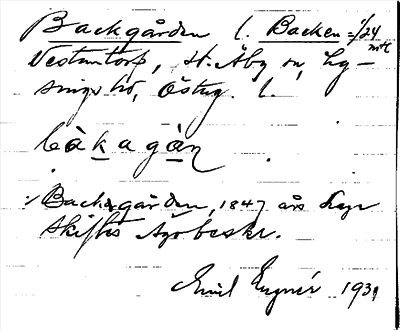 Backgården l. Backen = 1/24 mtl
Vestmtorp, St. Åby sn, Ly-
sings hd, Östug. l.
bàkagàn
:/ Backgården, 1847 års Laga
Skiftes Ägobeskr.
Emil Engnér 1931